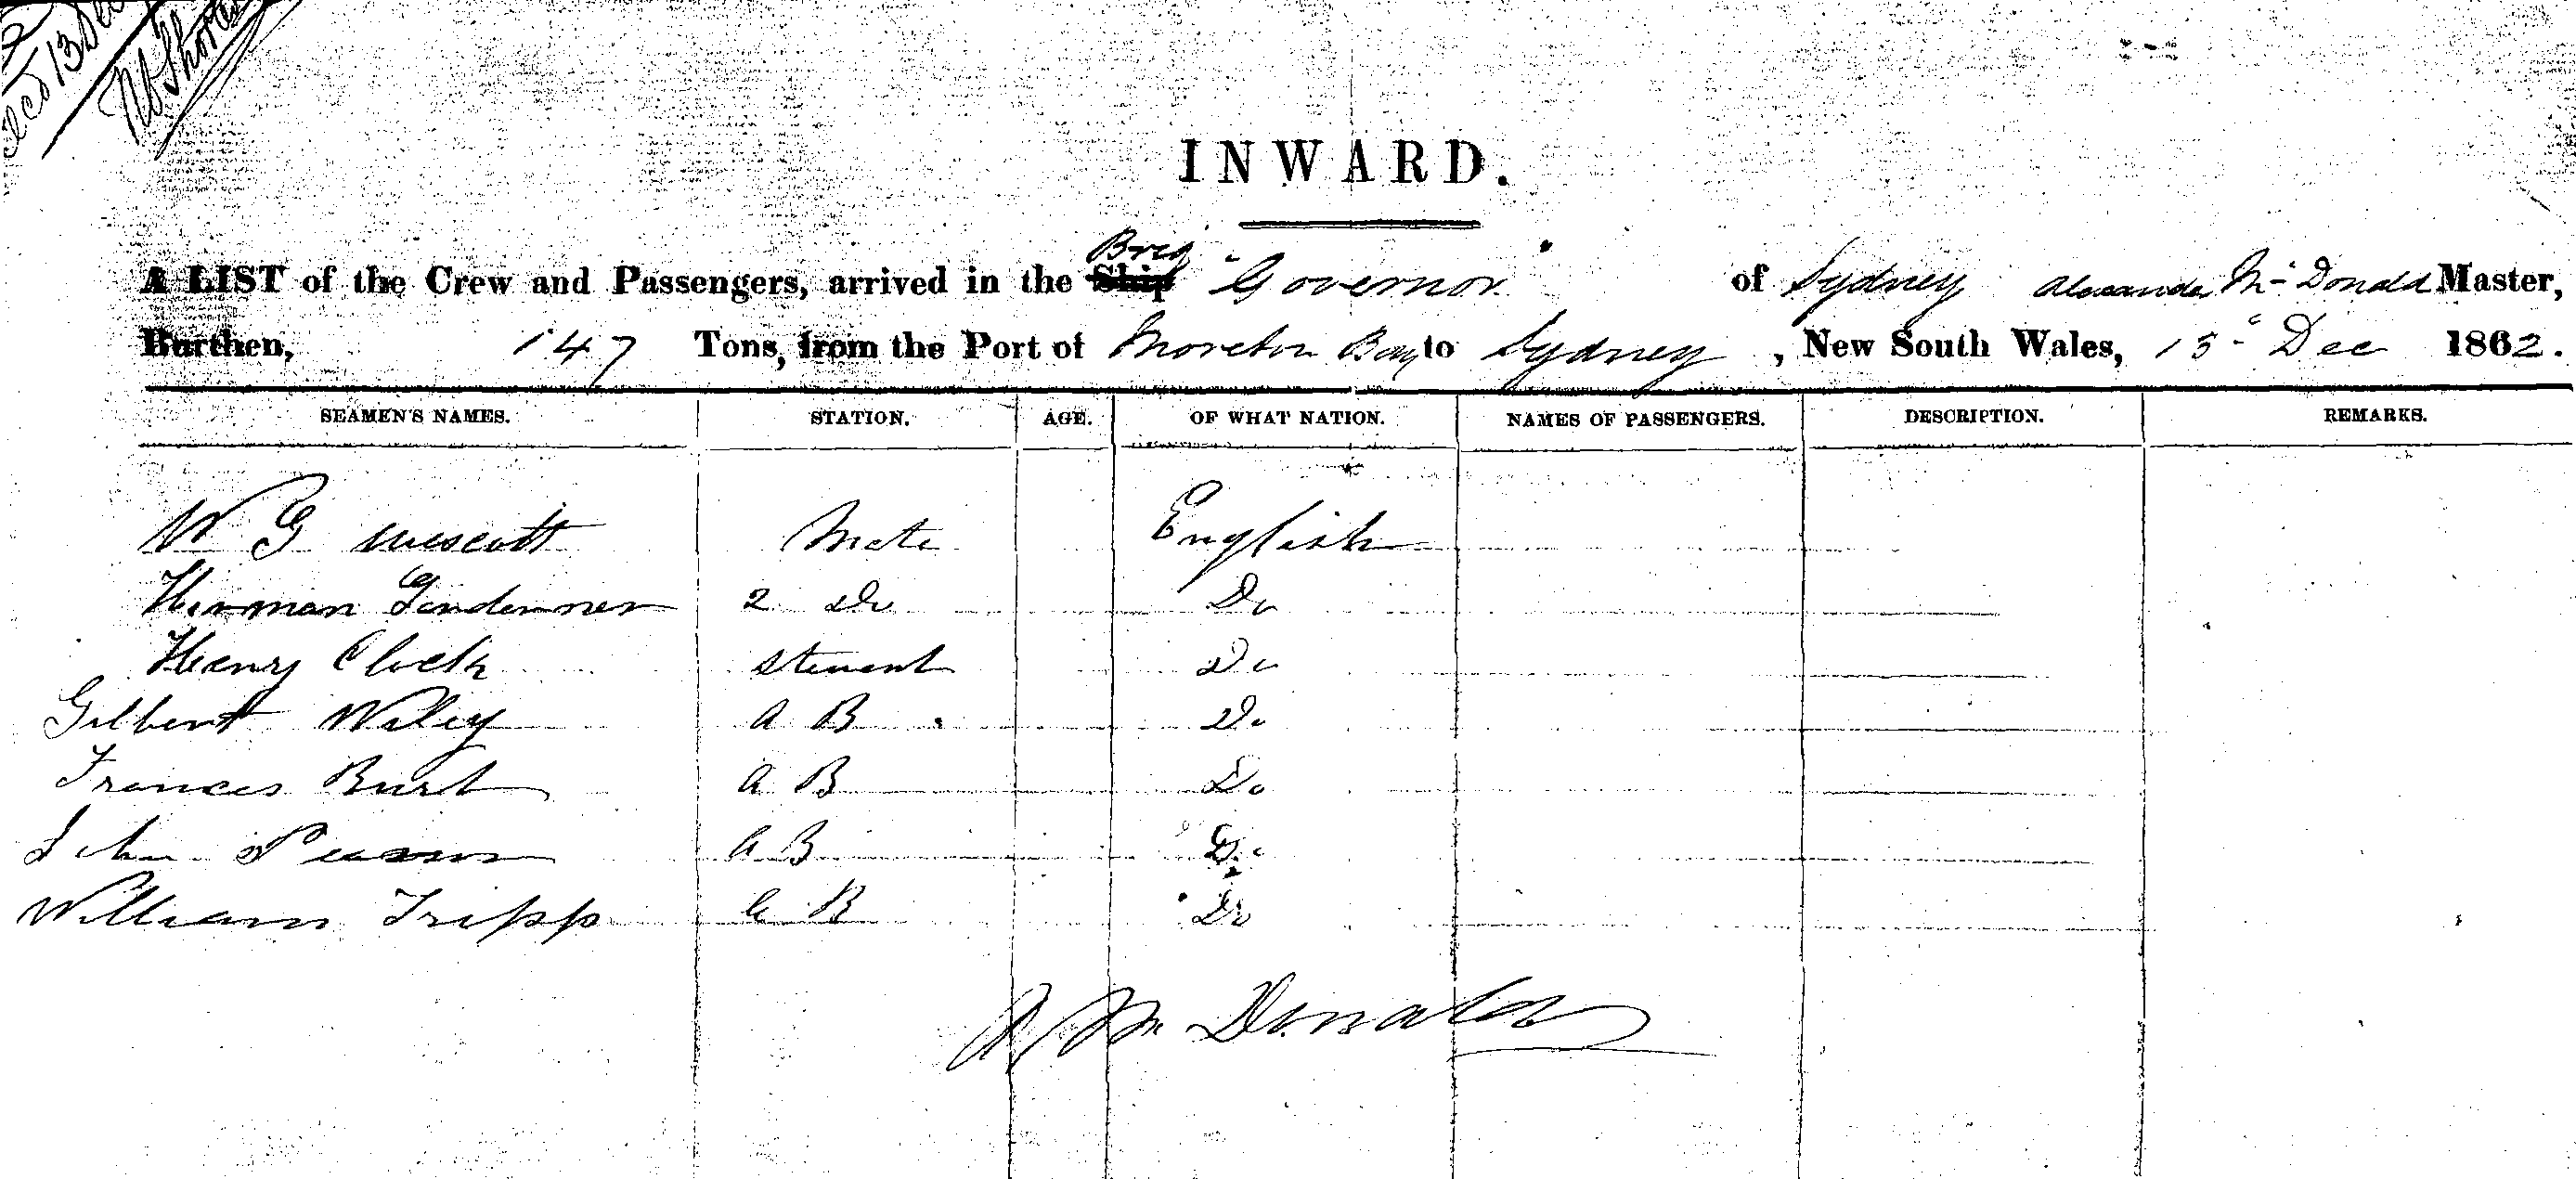 Recd 13 Dec
INWARD.
Brig
A LIST of the Crew and Passengers, arrived in the Ship "Governor" of Sydney Alexander Mc Donald Master,
Burthen, 147 Tons, from the Port of Moreton Bay to Sydney, New South Wales, 13 Dec 1862.
SEAMEN'S NAMES. STATION. AGE. OF WHAT NATION. NAMES OF PASSENGERS. DESCRIPTION. REMARKS.
W G Wescott Mate English
Herman 2 Do Do
Henry Clock Steward Do
Gilbert Wiley A B Do
Frances Burt A B Do
John A B Do
William Tripp A B Do
A Mc Donald